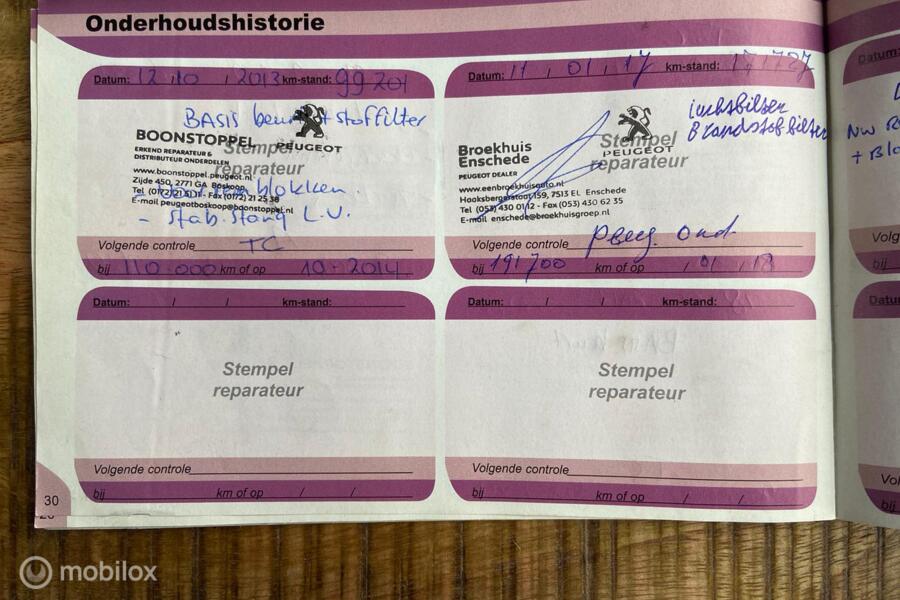 Onderhoudshistorie
Datum: 12 / 10 / 2013 km-stand: 99 201
BASIS beurt + stoffilter
BOONSTOPPEL
PEUGEOT
ERKEND REPARATEUR &
DISTRIBUTEUR ONDERDELEN
Stempel
reparateur
www.boonstoppel.peugeot.nl
Zijde 450, 2771 GA Boskoop
blokken.
Tel (0172) 21 50 11 - Fax (0172) 21 25 38
E-mail peugeotboskoop@boonstoppel.nl
- stab. stang L.V.
Volgende controle TC
bij 110.000 km of op 10-2014
Datum: 11 / 01 / 17 km-stand:
luchtfilter
Brandstoffilter
Broekhuis
Enschede
PEUGEOT
PEUGEOT DEALER
Stempel
reparateur
www.eenbroekhuisauto.nl
Haaksbergerstraat 159, 7513 EL Enschede
Tel (053) 430 01 12 - Fax (053) 430 62 35
E-mail enschede@broekhuisgroep.nl
Volgende controle Ond.
bij 191700 km of op / 01 / 18
Datum: / / km-stand:
Stempel
reparateur
Volgende controle
bij km of op / /
Datum: / / km-stand:
Stempel
reparateur
Volgende controle
bij km of op / /
30
Datum:
NW
+ Blo
Volg
bij
Datu
Vol
bij
mobilox